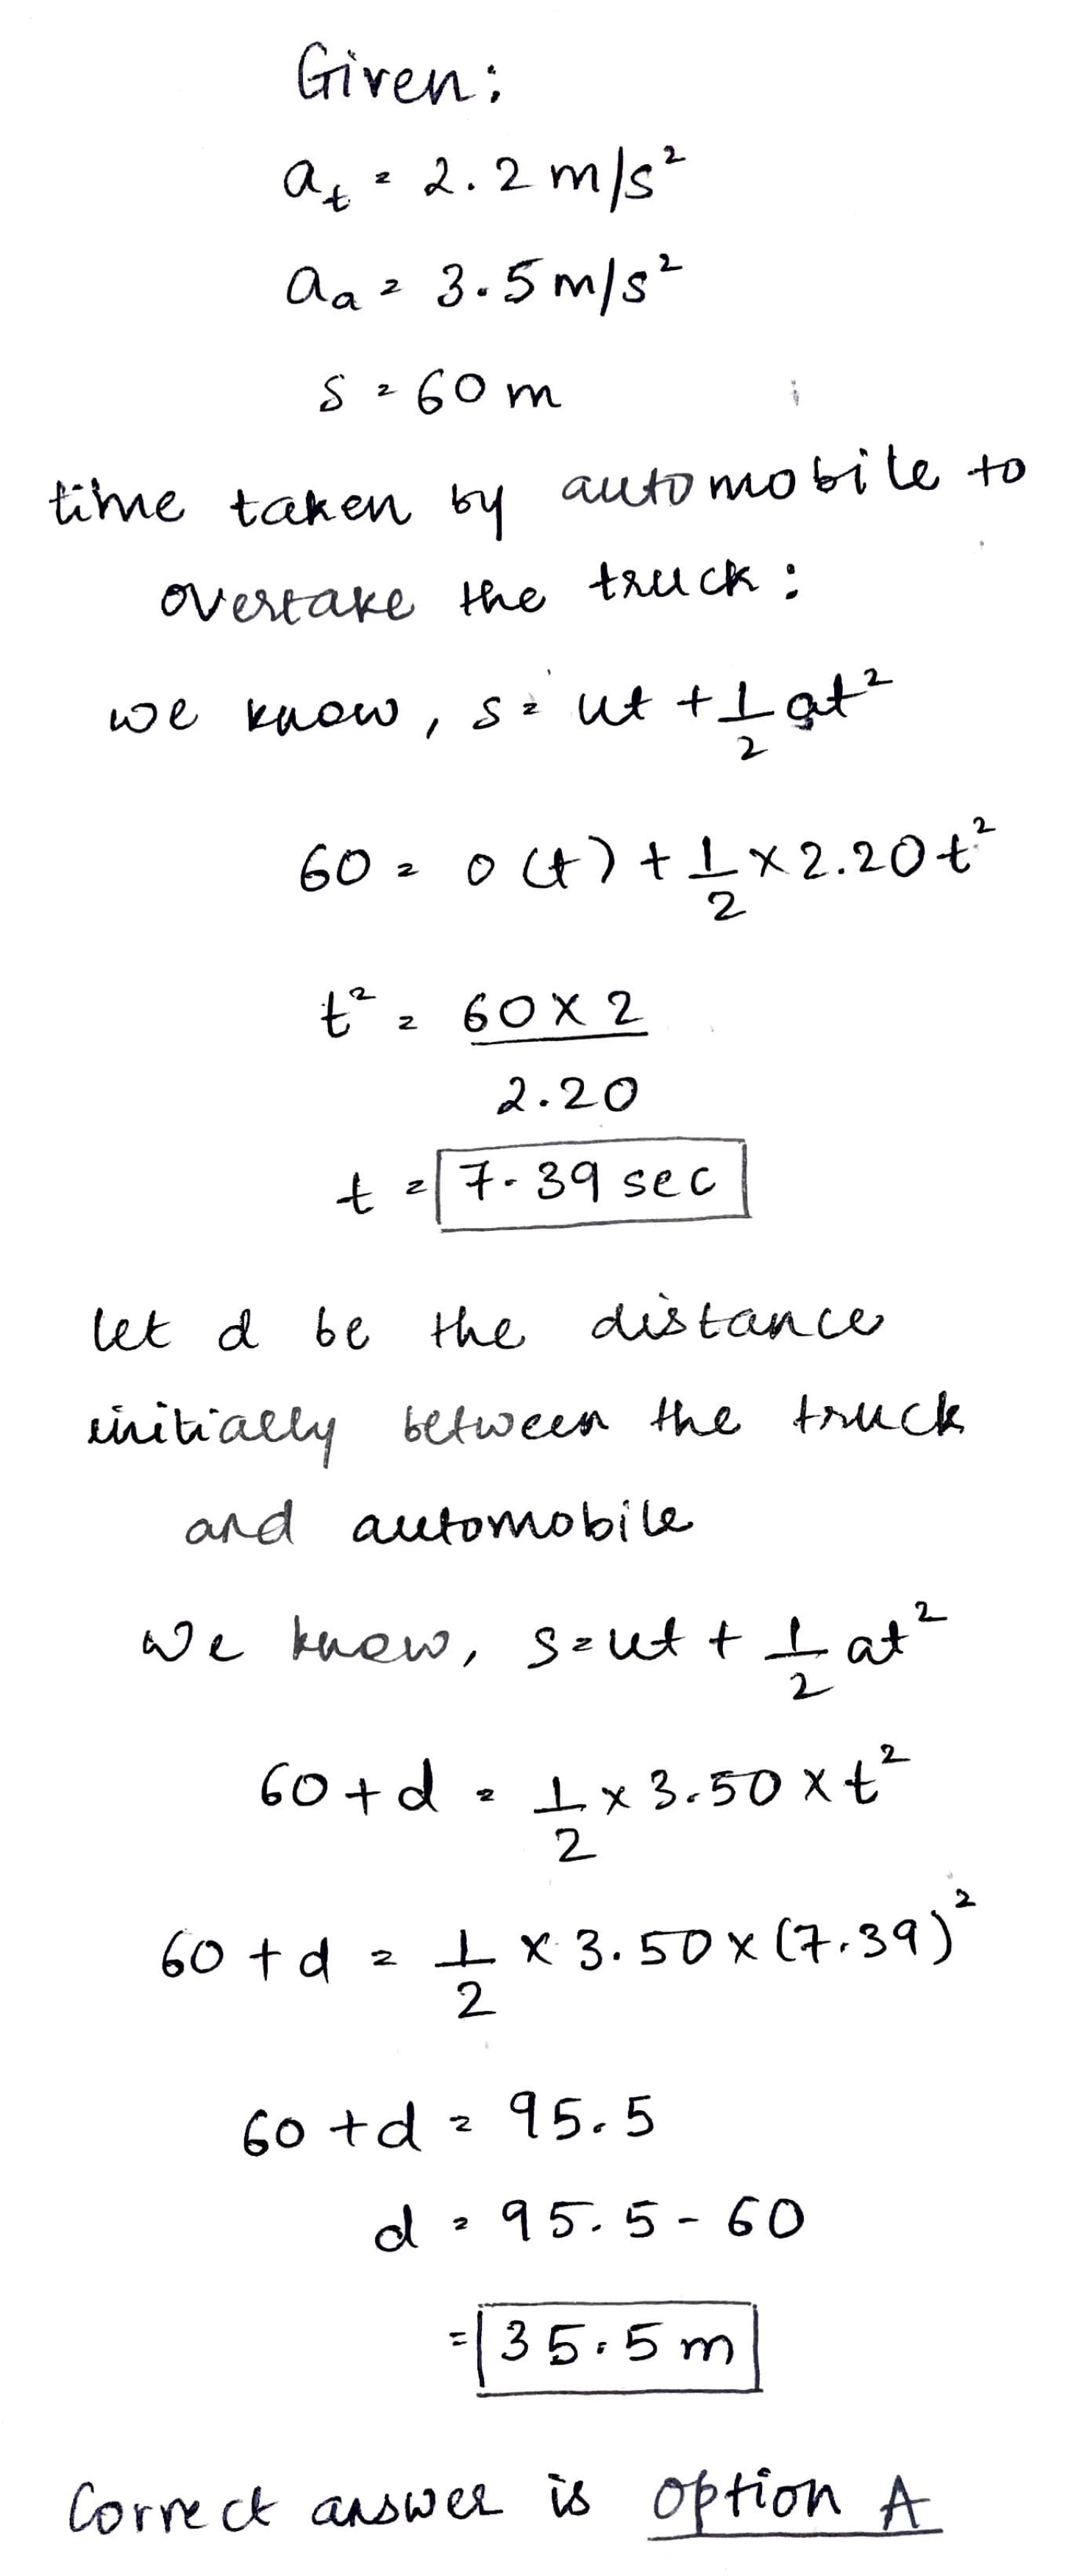 Given:
a_t = 2.2 m/s²
a_a = 3.5 m/s²
s = 60 m
time taken by automobile to
overtake the truck:
we know, s = ut + 1/2 at²
60 = 0(t) + 1/2 × 2.20 t²
t² = 60 × 2
2.20
t = 7.39 sec
let d be the distance
initially between the truck
and automobile
we know, s = ut + 1/2 at²
60 + d = 1/2 × 3.50 × t²
60 + d = 1/2 × 3.50 × (7.39)²
60 + d = 95.5
d = 95.5 - 60
= 35.5 m
Correct answer is option A